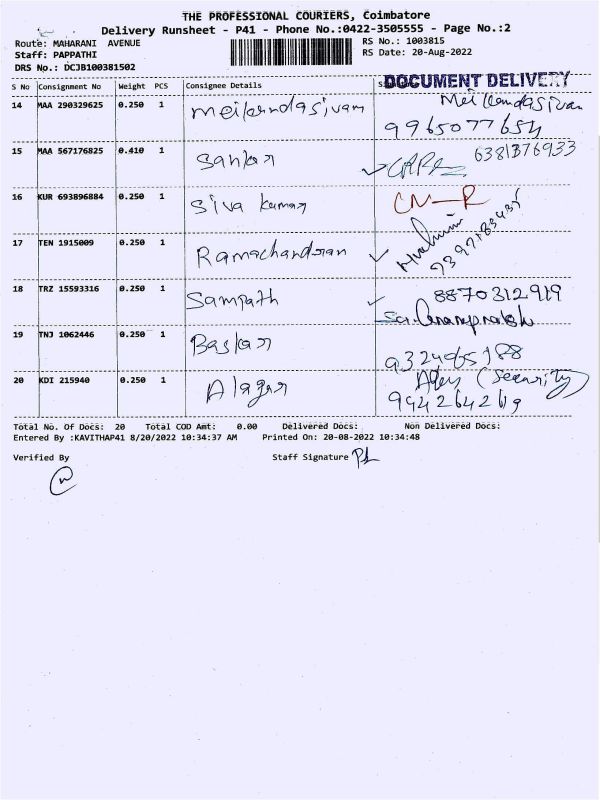 THE PROFESSIONAL COURIERS, Coimbatore
Delivery Runsheet - P41 - Phone No.:0422-3505555 - Page No.:2
Route: MAHARANI AVENUE
RS No.: 1003815
Staff: PAPPATHI
RS Date: 20-Aug-2022
DRS No.: DCJB100381502
DOCUMENT DELIVERY
S No Consignment No Weight PCS Consignee Details
14 MAA 290329625 0.250 1 meilandasivam
9965077654
15 MAA 567176825 0.410 1 Sankar 6381376933
16 KUR 693896884 0.250 1 Siva kumar
17 TEN 1915009 0.250 1 Ramachandran
18 TRZ 15593316 0.250 1 Sampath 8870312919
19 TNJ 1062446 0.250 1 Baskar
20 KDI 215940 0.250 1 Alagar (Security)
Total No. Of Docs: 20 Total COD Amt: 0.00 Delivered Docs: Non Delivered Docs:
Entered By :KAVITHAP41 8/20/2022 10:34:37 AM Printed On: 20-08-2022 10:34:48
Verified By Staff Signature